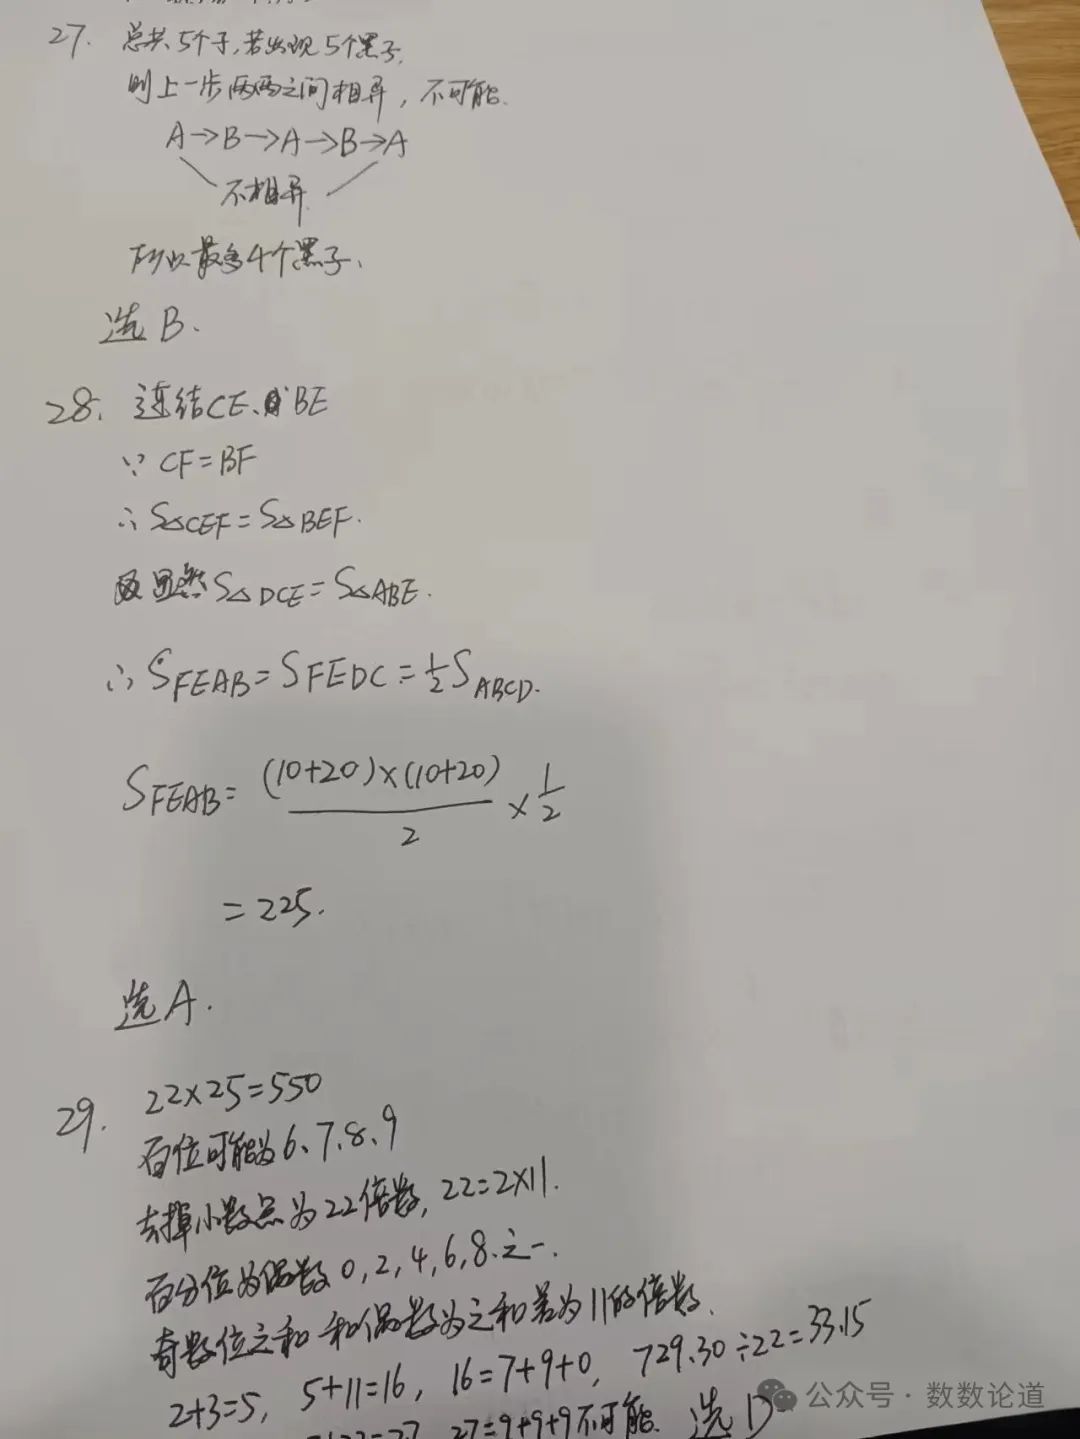 27. 总共5个子,若出现5个黑子,
则上一步两两之间相异,不可能.
A→B→A→B→A
不相异.
所以最多4个黑子.
选B.
28. 连结CE、BE
∵ CF=BF
∴ S△CEF=S△BEF.
又显然S△DCE=S△ABE.
∴ SFEAB=SFEDC=1/2 SABCD.
SFEAB= (10+20)×(10+20)/2 × 1/2
=225.
选A.
29. 22×25=550
百位可能为6、7、8、9
去掉小数点为22倍数, 22=2×11.
百分位为偶数0,2,4,6,8之一.
奇数位之和和偶数为之和差为11的倍数.
2+3=5, 5+11=16, 16=7+9+0, 729.30÷22=33.15
27=9+9+9不可能. 选D
公众号·数数论道